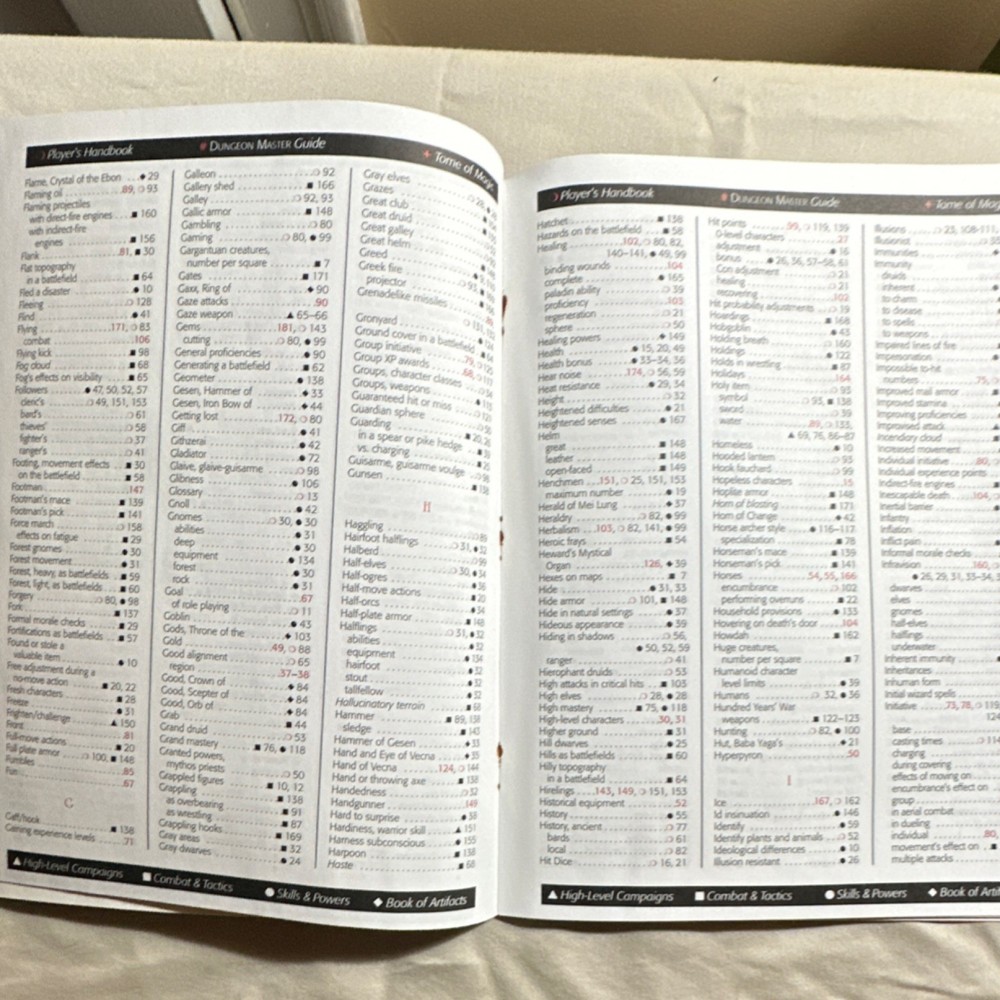 Player's Handbook
DUNGEON MASTER Guide
Tome of
Flame, Crystal of the Ebon ◆ 29
Flaming oil 89, 93
Flaming projectiles
with direct-fire engines ■ 160
with indirect-fire
engines ■ 156
Flank 81, ■ 30
Flat topography
in a battlefield ■ 64
Fled a disaster ● 10
Fleeing 128
Flind ● 41
Flying 171, 83
combat 106
Flying kick ■ 98
Fog cloud ■ 68
Fog's effects on visibility ■ 65
Followers ● 47, 50, 52, 57
cleric's 49, 151, 153
bard's 61
thieves' 58
fighter's 37
ranger's 41
Footing, movement effects ■ 30
on the battlefield ■ 58
Footman 147
Footman's mace ■ 139
Footman's pick ■ 141
Force march 158
effects on fatigue ■ 29
Forest gnomes ● 30
Forest movement ● 31
Forest, heavy, as battlefields ■ 59
Forest, light, as battlefields ■ 60
Forgery 80, ● 98
Fork ■ 137
Formal morale checks ■ 29
Fortifications as battlefields ■ 57
Found or stole a
valuable item ● 10
Free adjustment during a
no-move action ■ 20, 22
Fresh characters ■ 28
Freeze ● 31
Frighten/challenge ▲ 150
Front 81
Full-move actions ■ 20
Full plate armor 100, ■ 148
Fumbles 85
Fun 67
G
Gaff/hook ■ 138
Gaining experience levels 71
Galleon 92
Gallery shed ■ 166
Galley 92, 93
Gallic armor ■ 148
Gambling 80
Gaming 80, ● 99
Gargantuan creatures,
number per square ■ 7
Gates ■ 171
Gaxx, Ring of ◆ 90
Gaze attacks 90
Gaze weapon ▲ 65–66
Gems 181, 143
cutting 80, ● 99
General proficiencies ● 90
Generating a battlefield ■ 62
Geometer ● 138
Gesen, Hammer of ◆ 33
Gesen, Iron Bow of ◆ 44
Getting lost 172, 80
Giff ● 41
Githzerai ● 42
Gladiator ● 72
Glaive, glaive-guisarme 98
Glibness ● 106
Glossary 13
Gnoll ● 42
Gnomes 30, ● 30
abilities ● 31
deep ● 30
equipment ● 134
forest ● 30
rock ● 31
Goal 67
of role playing 11
Goblin ● 43
Gods, Throne of the ◆ 103
Gold 49, 88
Good alignment 65
region 37–38
Good, Crown of ◆ 84
Good, Scepter of ◆ 84
Good, Orb of ◆ 84
Grab ■ 44
Grand druid 53
Grand mastery ■ 76, ● 118
Granted powers,
mythos priests 50
Grappled figures ■ 10, 12
Grappling ■ 138
as overbearing ■ 91
as wrestling ■ 87
Grappling hooks ■ 169
Gray areas ■ 32
Gray dwarves ● 24
Gray elves
Grazes
Great club
Great druid
Great galley
Great helm
Greed
Greek fire
projector
Grenadelike missiles
Gronyard
Ground cover in a battlefield
Group initiative
Group XP awards
Groups, character classes
Groups, weapons
Guaranteed hit or miss
Guardian sphere
Guarding
in a spear or pike hedge
vs. charging
Guisarme, guisarme voulge
Gunsen
H
Haggling
Hairfoot halflings 31, ● 32
Halberd 99
Half-elves 30, ● 34
Half-ogres
Half-move actions ■ 22
Half-orcs
Half-plate armor ■ 148
Halflings 31, ● 32
abilities ● 32
equipment ● 134
hairfoot ● 32
stout ● 32
tallfellow ● 32
Hallucinatory terrain ■ 68
Hammer ■ 89, 138
sledge ■ 143
Hammer of Gesen ◆ 33
Hand and Eye of Vecna ◆ 35
Hand of Vecna 124, 144
Hand or throwing axe ■ 138
Handedness 32
Handgunner 149
Hard to surprise ● 38
Hardiness, warrior skill ▲ 151
Harness subconscious ● 155
Harpoon ■ 138
Haste ■ 68
▲ High-Level Campaigns
■ Combat & Tactics
● Skills & Powers
◆ Book of Artifacts
Player's Handbook
DUNGEON MASTER Guide
Tome of Mag
Hatchet ■ 138
Hazards on the battlefield ■ 58
Healing 102, 80, 82,
140–141, ● 49, 99
binding wounds 104
complete ● 165
paladin ability 39
proficiency 103
regeneration 21
sphere 50
Healing powers ◆ 149
Health ● 15, 20, 49
Health bonus ● 33–34, 36
Hear noise 174, 56, 59
Heat resistance ● 29, 34
Height 32
Heightened difficulties ● 21
Heightened senses ● 167
Helm
great ■ 148
leather ■ 148
open-faced ■ 149
Henchmen 151, 25, 151, 153
maximum number ● 19
Herald of Mei Lung ◆ 37
Heraldry 82, ● 99
Herbalism 103, 82, 141, ● 99
Heroic frays ■ 54
Heward's Mystical
Organ 126, ◆ 39
Hexes on maps ■ 7
Hide ● 31, 33
Hide armor 101, ■ 148
Hide in natural settings ● 37
Hideous appearance ● 39
Hiding in shadows 56,
● 50, 52, 59
ranger 41
Hierophant druids 53
High attacks in critical hits ■ 103
High elves 28, ● 28
High mastery ■ 75, ● 118
High-level characters 30, 31
Higher ground ■ 31
Hill dwarves ● 25
Hills as battlefields ■ 60
Hilly topography
in a battlefield ■ 64
Hirelings 143, 149, 151, 153
Historical equipment 52
History ● 55
History, ancient 77
bards 61
local 82
Hit Dice 16, 21
Hit points 99, 119, 139
0-level characters 27
adjustment ● 16
bonus ● 26, 56, 57–58, 61
Con adjustment 21
healing 21
recovering 102
Hit probability adjustments 19
Hoardings ■ 168
Hobgoblin ● 43
Holding breath 160
Holdings ● 122
Holds in wrestling ■ 87
Holidays 164
Holy item 93
symbol 93, ■ 138
sword 39
water 89, 133,
▲ 69, 76, 86–87
Homeless ● 10
Hooded lantern 93
Hook fauchard 99
Hopeless characters 15
Hoplite armor ■ 148
Horn of blasting ■ 171
Horn of Change ◆ 42
Horse archer style ● 116–117
specialization ■ 78
Horseman's mace ■ 139
Horseman's pick ■ 141
Horses 54, 55, 166
encumbrance 102
performing overruns ■ 22
Household provisions ● 133
Hovering on death's door 104
Howdah ■ 162
Huge creatures,
number per square ■ 7
Humanoid character
level limits ● 39
Humans 32, ● 36
Hundred Years' War
weapons ■ 122–123
Hunting 82, ● 100
Hut, Baba Yaga's ◆ 21
Hyperpyron 50
I
Ice 167, 162
Id insinuation ● 146
Identify ● 59
Identify plants and animals 52
Ideological differences ● 10
Illusion resistant ● 26
Illusions 23, 108–111,
Illusions
Immunities
Immunity
druids
inherent
to charm
to disease
to spells
to weapons
Impaired lines of fire
Impersonation
Impossible to-hit
numbers 75,
Improved mail armor
Improved stamina
Improving proficiencies
Improvised attack
Incendiary cloud
Increased movement
Individual initiative 80,
Individual experience points
Indirect-fire engines
Inescapable death 104,
Inertial barrier
Infantry
Inflation
Inflict pain
Informal morale checks
Infravision 160,
● 26, 29, 31, 33–34, 3
dwarves
elves
gnomes
half-elves
halflings
underwater
Inherent immunity
Inheritances
Inhuman form
Initial wizard spells
Initiative 73, 78, 119
base
casting times 114
charging
during covering
effects of moving on
encumbrance's effect on
group
in aerial combat
in dueling
individual 80,
movement's effect on
multiple attacks
▲ High-Level Campaigns
■ Combat & Tactics
● Skills & Powers
◆ Book of Arti